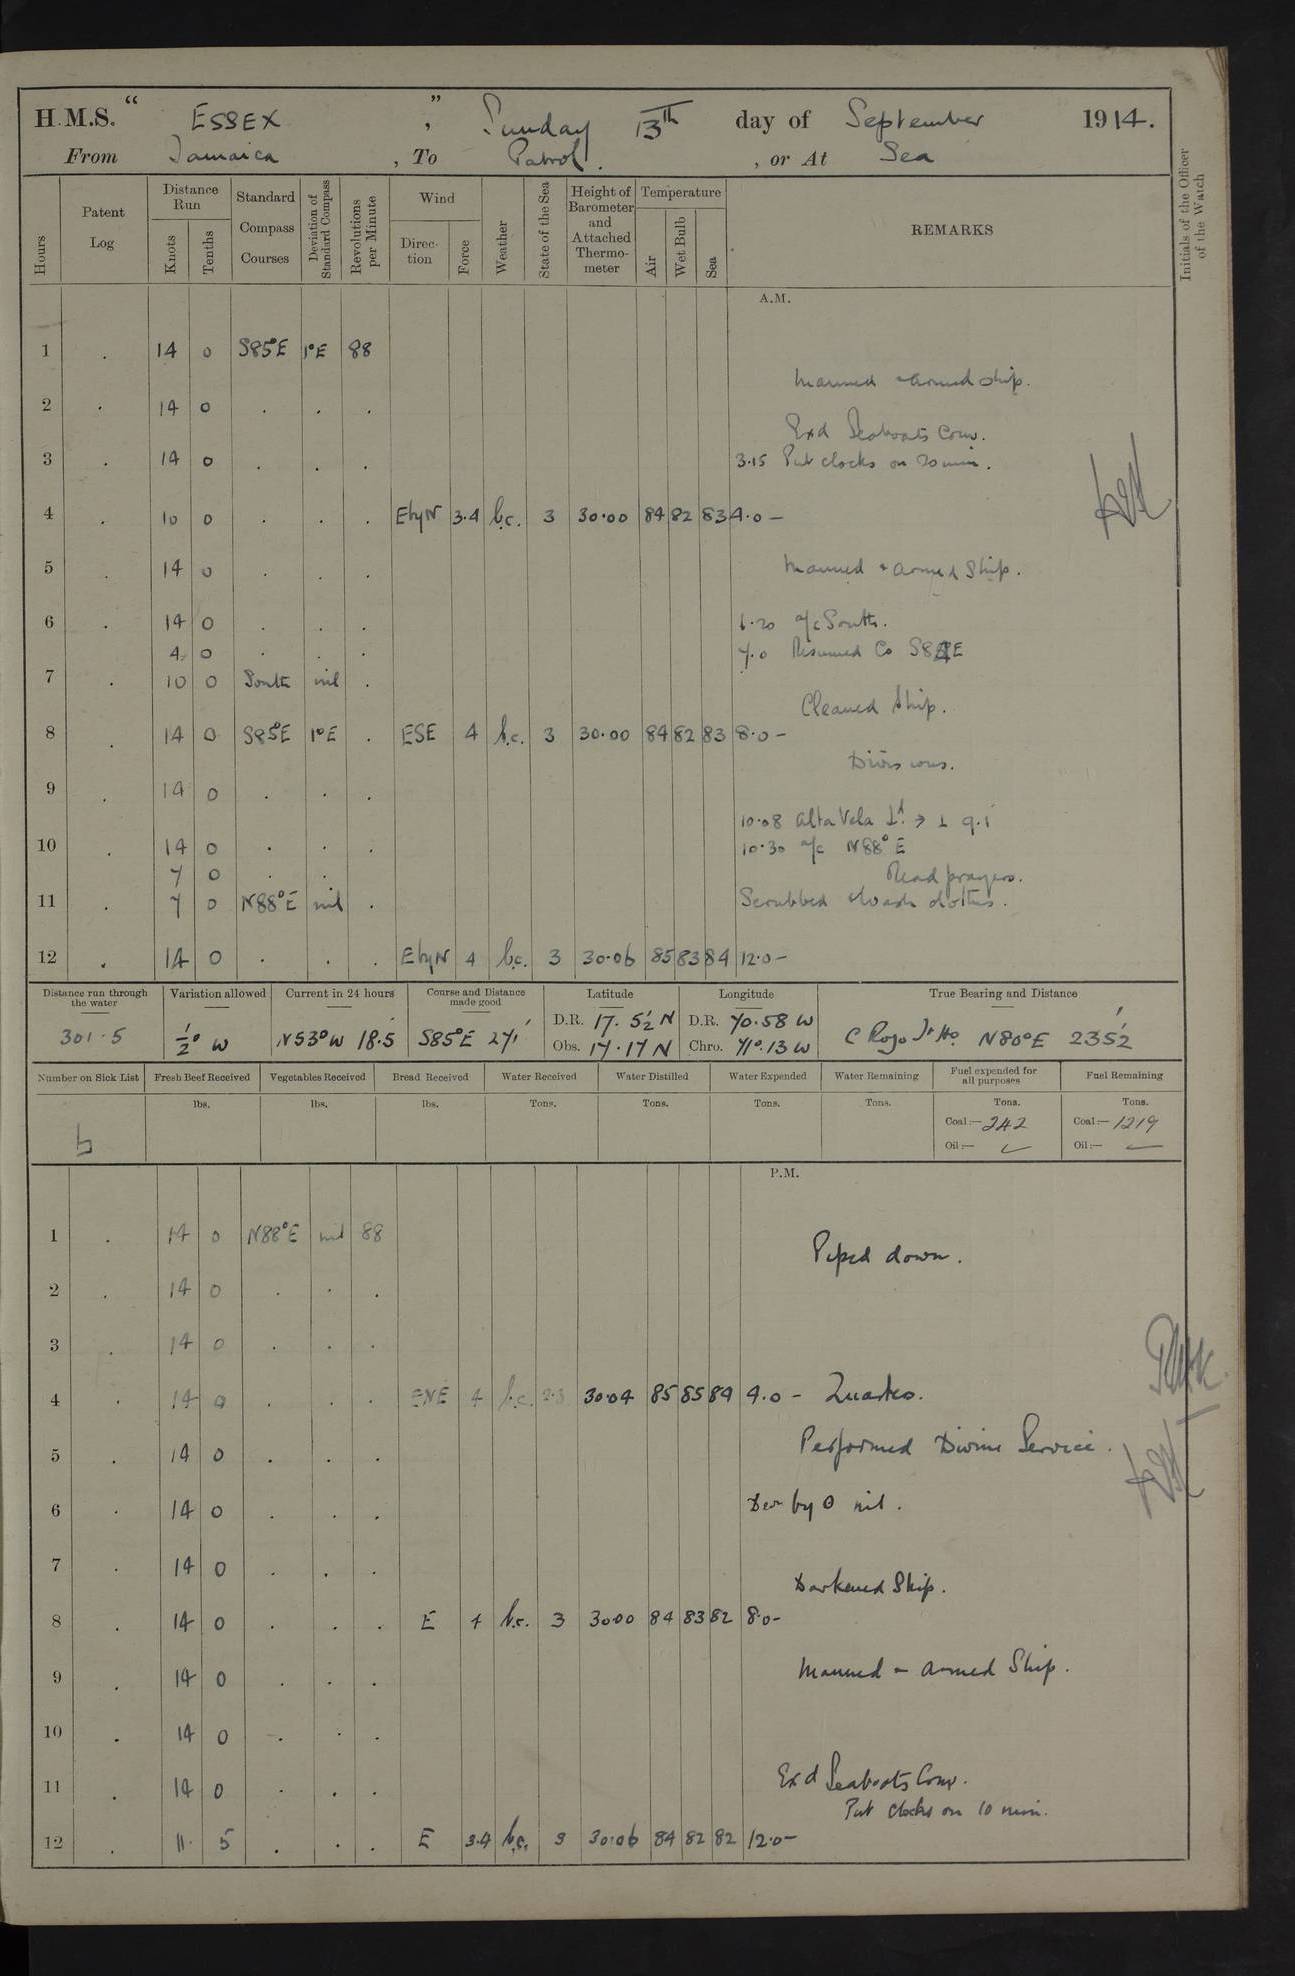 H.M.S. " ESSEX " , Sunday 13th day of September 1914.
From Jamaica , To Patrol. , or At Sea
Hours Patent Log Distance Run Knots Tenths Standard Compass Courses Deviation of Standard Compass Revolutions per Minute Wind Direction Force Weather State of the Sea Height of Barometer and Attached Thermometer Temperature Air Wet Bulb Sea REMARKS Initials of the Officer of the Watch
A.M.
1 . 14 0 S85°E 1°E 88
Manned & armed ship.
2 . 14 0 . . .
Exd Seaboats Crew.
3 . 14 0 . . . 3.15 Put clocks on 20 min.
4 . 10 0 . . . E by N 3.4 b.c. 3 30.00 84 82 83 4.0 -
5 . 14 0 . . . Manned & armed Ship.
6 . 14 0 . . . 6.20 a/c South.
4 0 . . . 7.0 Resumed Co S85E
7 . 10 0 South nil .
Cleaned Ship.
8 . 14 0 S85°E 1°E . ESE 4 b.c. 3 30.00 84 82 83 8.0 -
Divisions.
9 . 14 0 . . .
10.08 Alta Vela Id. → ⊥ 9.1'
10 . 14 0 . . . 10.30 a/c N88°E
7 0 . . Read prayers.
11 . 7 0 N88°E nil . Scrubbed & wash clothes.
12 . 14 0 . . . E by N 4 b.c. 3 30.06 85 83 84 12.0 -
Distance run through the water Variation allowed Current in 24 hours Course and Distance made good Latitude Longitude True Bearing and Distance
301.5 ½° W N53°W 18.5 S85°E 271' D.R. 17. 5½ N D.R. 70.58 W
Obs. 17.17 N Chro. 71°.13 W C Rojo Lt Ho. N80°E 235½'
Number on Sick List Fresh Beef Received Vegetables Received Bread Received Water Received Water Distilled Water Expended Water Remaining Fuel expended for all purposes Fuel Remaining
lbs. lbs. lbs. Tons. Tons. Tons. Tons. Tons. Tons.
Coal:— 242 Coal:— 1219
Oil:— Oil:—
P.M.
1 . 14 0 N88°E nil 88
Piped down.
2 . 14 0 . . .
3 . 14 0 . . .
4 . 14 0 . . . ENE 4 b.c. 2.3 30.04 85 85 84 4.0 - Quarters.
5 . 14 0 . . . Performed Divine Service.
6 . 14 0 . . . Dev by O nil.
7 . 14 0 . . .
Darkened Ship.
8 . 14 0 . . . E 4 b.c. 3 30.00 84 83 82 8.0-
9 . 14 0 . . . Manned & armed Ship.
10 . 14 0 . . .
11 . 14 0 . . . Exd Seaboats Crew.
Put clocks on 10 min.
12 . 11. 5 . . . E 3.4 b.c. 3 30.06 84 82 82 12.0-